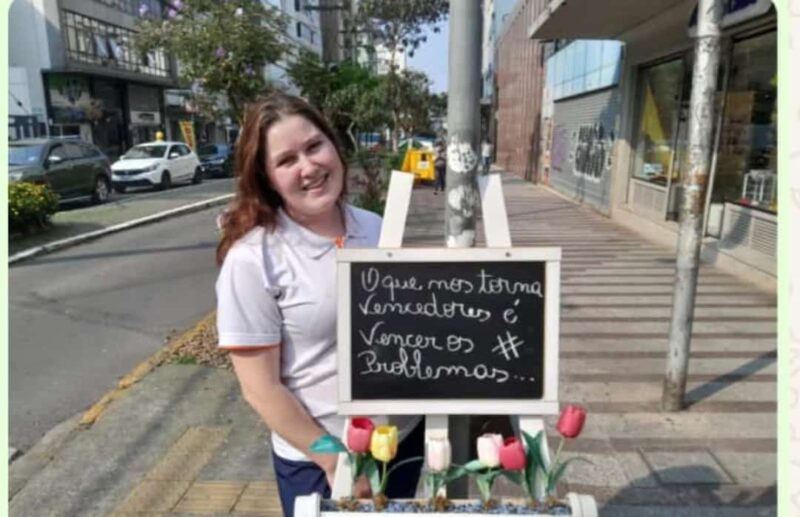 O que nos torna
Vencedores é
Vencer os #
Problemas...